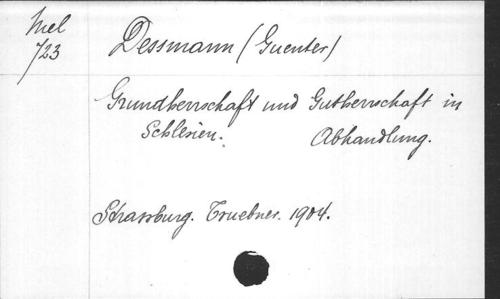 Mel
723
Dessmann (Guenter)
Grundherrschaft und Gutherrschaft in
Schlesien. Abhandlung.
Strassburg. Truebner. 1904.